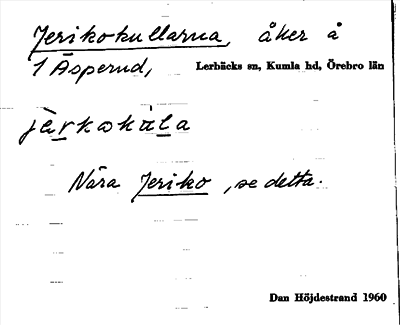 Jerikokullarna, åker å
1 Äsperud, Lerbäcks sn, Kumla hd, Örebro län
jèrkokùla
Nära Jeriko, se detta.
Dan Höjdestrand 1960